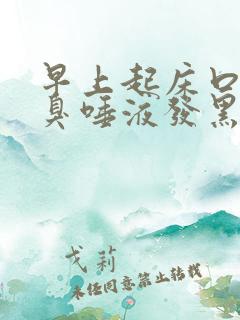 早上起床口
臭唾液發黑
戈莉
未经同意禁止转载